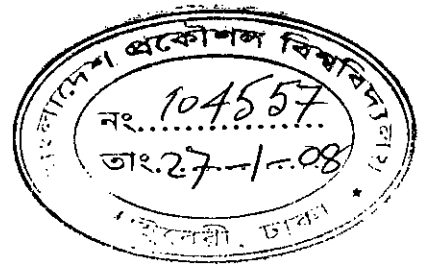 বাংলাদেশ প্রকৌশল বিশ্ববিদ্যালয়
নং. 104557
তাং. 27-1-08
লাইব্রেরী, ঢাকা